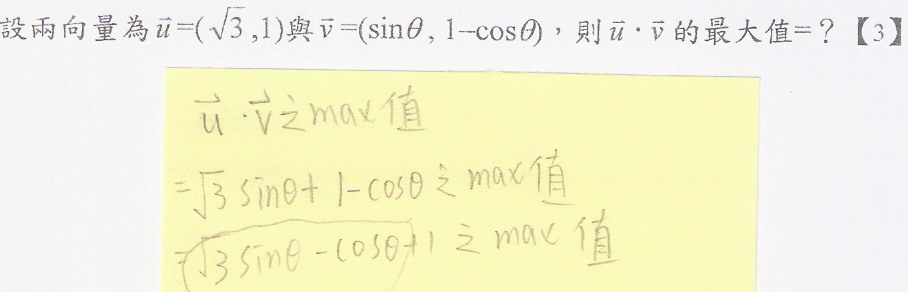 設兩向量為u⃗=(√3,1)與v⃗=(sinθ, 1−cosθ)，則u⃗·v⃗的最大值=？【3】
u⃗·v⃗之max值
=√3sinθ+1-cosθ之max值
=√3sinθ-cosθ+1之max值